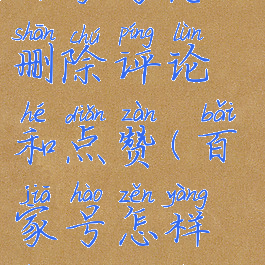 shān chú píng lùn
删除评论
hé diǎn zàn bǎi
和点赞(百
jiā hào zěn yàng
家号怎样